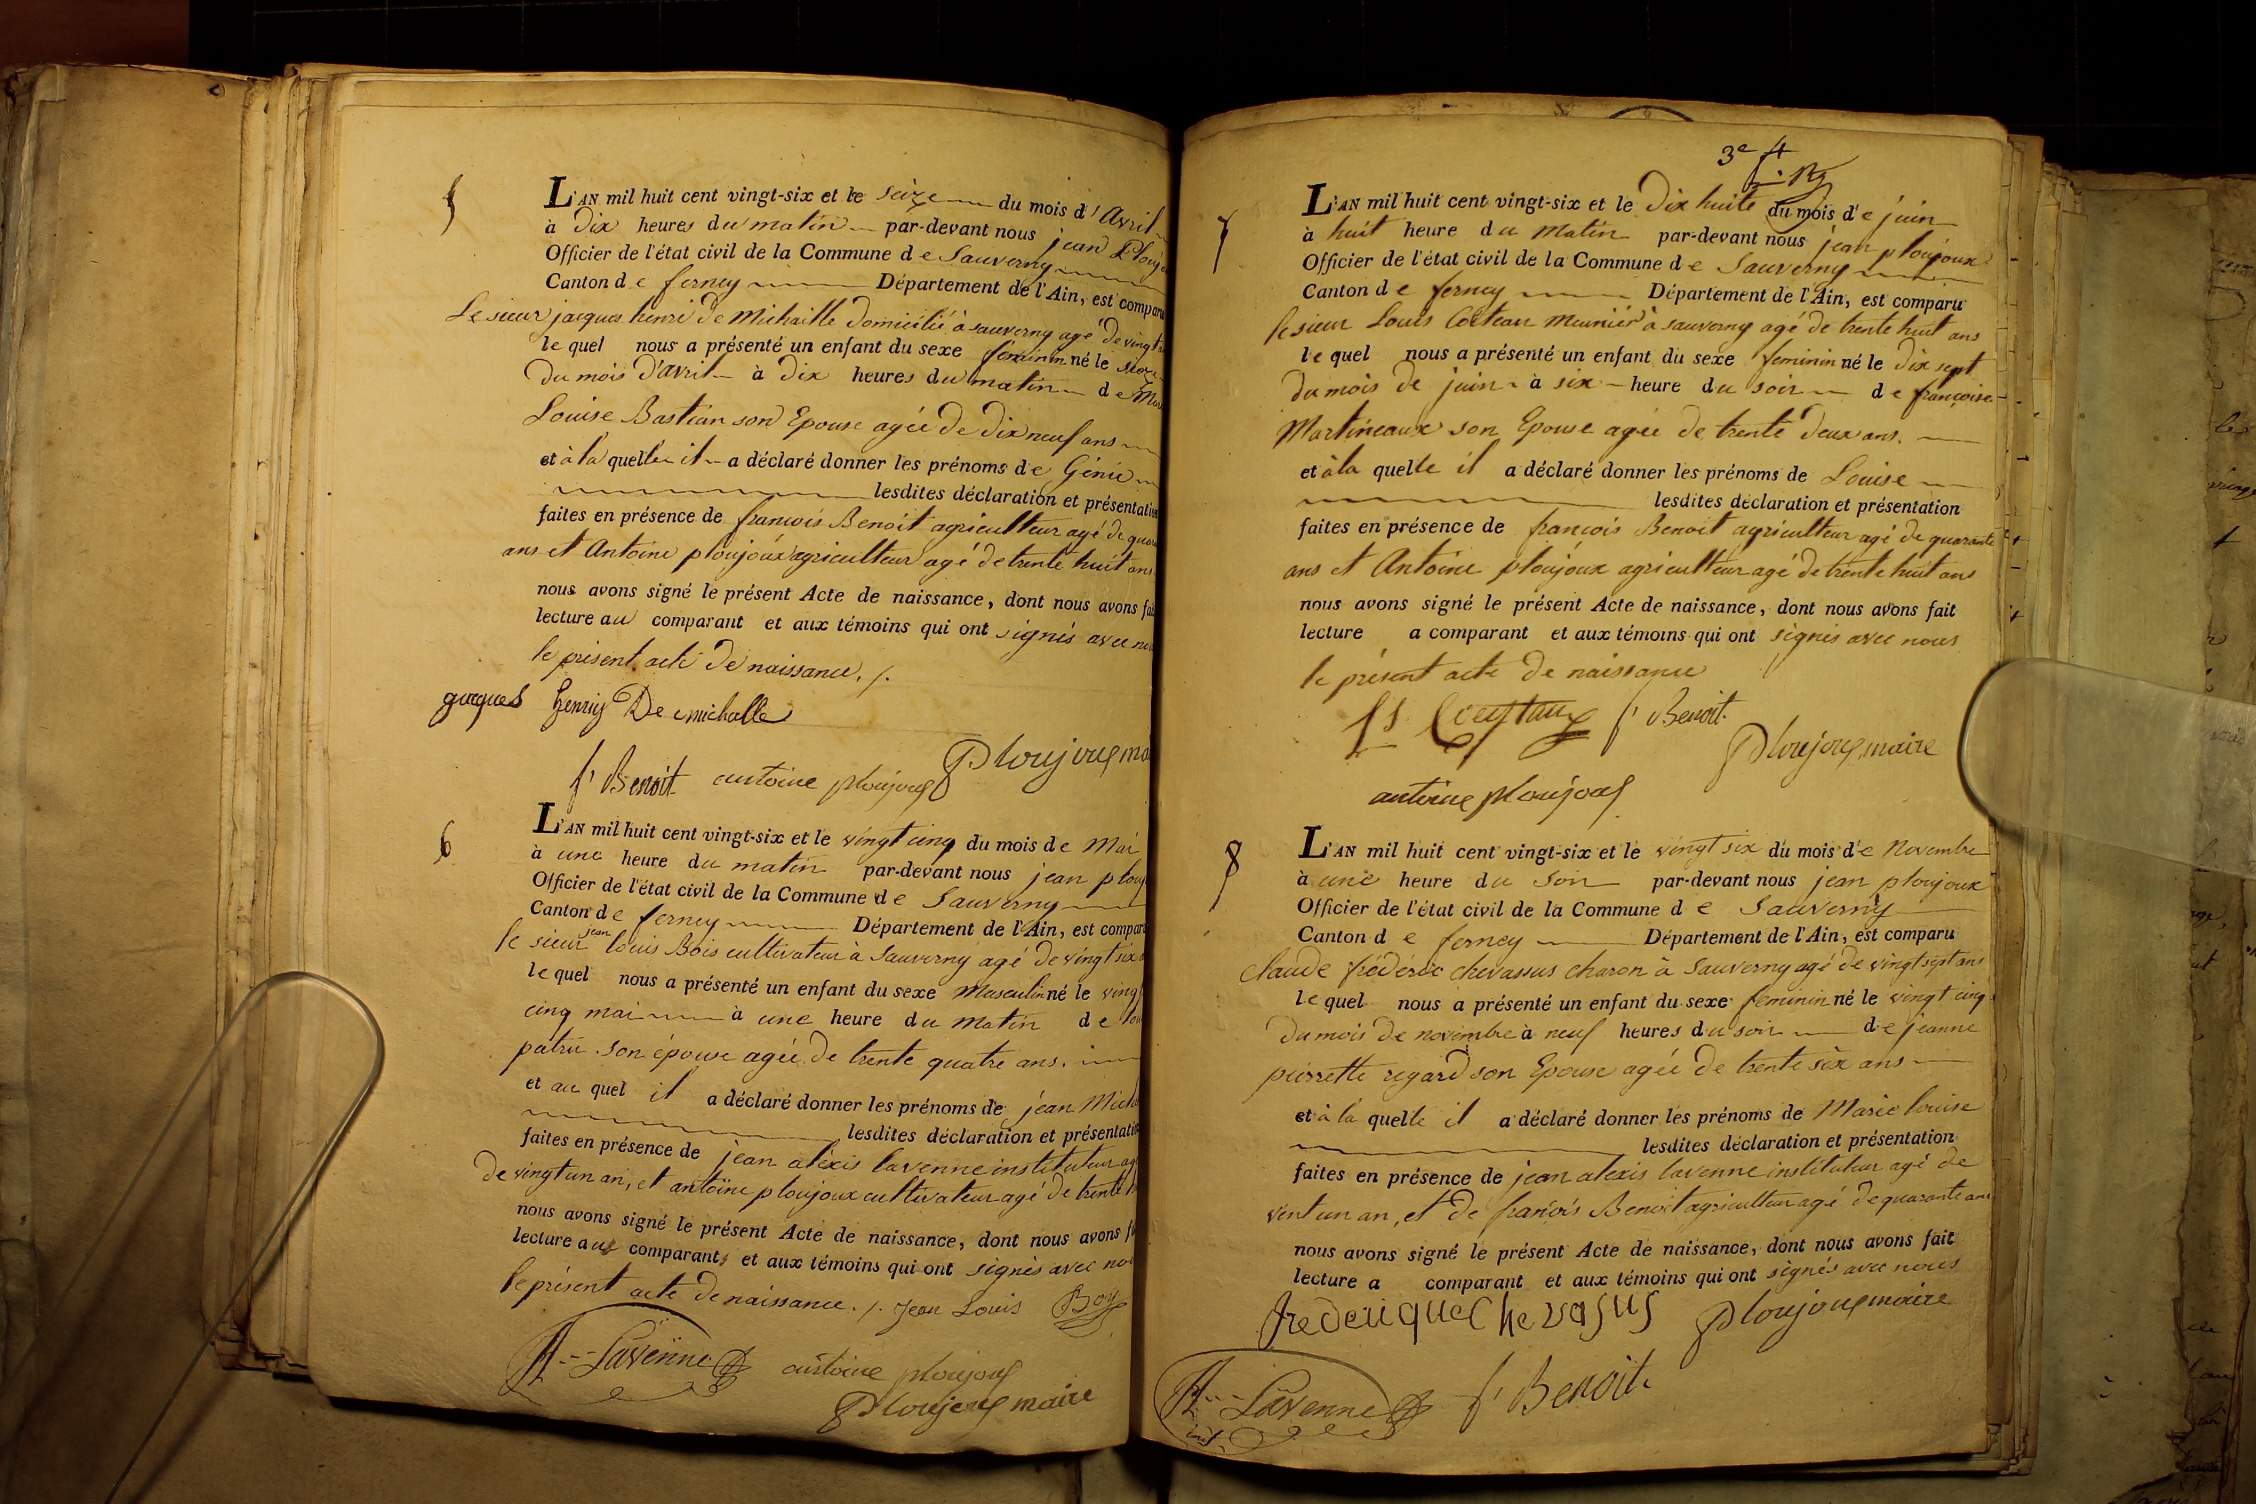 5
L'AN mil huit cent vingt-six et le seize du mois d'Avril
à Dix heures du matin par-devant nous jean Plouj
Officier de l'état civil de la Commune de Sauverny
Canton de ferney Département de l'Ain, est comparu
Le sieur jacques henri de Michaille domicilié à sauverny agé de vingt
le quel nous a présenté un enfant du sexe féminin né le seize
du mois d'avril à dix heures du matin de
Louise Bastian son Epouse agée de dix neuf ans
et à la quelle il a déclaré donner les prénoms de Génie
lesdites déclaration et présentation
faites en présence de françois Benoit agriculteur agé de
ans et Antoine ploujoux agriculteur agé de trente huit ans
nous avons signé le présent Acte de naissance, dont nous avons fai
lecture au comparant et aux témoins qui ont signés avec
le présent acte de naissance ./.
gacques henriy De michalle
f' Benoit antoine ploujoux Ploujoux
6
L'AN mil huit cent vingt-six et le vingt cinq du mois de Mai
à une heure du matin par-devant nous jean plouj
Officier de l'état civil de la Commune de Sauverny
Canton de ferney Département de l'Ain, est compar
le sieur jean louis Bois cultivateur à Sauverny agé de vingt six
le quel nous a présenté un enfant du sexe Masculin né le ving
cinq mai à une heure du matin de
patru son épouse agée de trente quatre ans.
et au quel il a déclaré donner les prénoms de jean Mich
lesdites déclaration et présentatio
faites en présence de jean aléxis lavenne instituteur ag
de vingt un an, et antoine ploujoux cultivateur agé de trente
nous avons signé le présent Acte de naissance, dont nous avons f
lecture aux comparants et aux témoins qui ont signés avec no
le présent acte de naissance ./. Jean Louis Boy
A Lavenne antoine ploujoux
Ploujoux maire
3e f
7
L'AN mil huit cent vingt-six et le Dix huite du mois de juin
à huit heure du matin par-devant nous jean ploujoux
Officier de l'état civil de la Commune de Sauverny
Canton de ferney Département de l'Ain, est comparu
le sieur Louis Meunier à sauverny agé de trente huit ans
le quel nous a présenté un enfant du sexe feminin né le dix sept
du mois de juin à six heure du soir de françoise
Martineaux son Epouse agée de trente deux ans.
et à la quelle il a déclaré donner les prénoms de Louise
lesdites déclaration et présentation
faites en présence de françois Benoit agriculteur agé de quarante
ans et Antoine ploujoux agriculteur agé de trente huit ans
nous avons signé le présent Acte de naissance, dont nous avons fait
lecture a comparant et aux témoins qui ont signés avec nous
le présent acte de naissance
f' Benoit
Ploujoux maire
antoine ploujoux
8
L'AN mil huit cent vingt-six et le vingt six du mois de Novembre
à une heure du Soir par-devant nous jean ploujoux
Officier de l'état civil de la Commune de Sauverny
Canton de ferney Département de l'Ain, est comparu
claude frédéric chevassus charon à Sauverny agé de vingt sept ans
le quel nous a présenté un enfant du sexe feminin né le vingt cinq
du mois de novembre à neuf heures du soir de jeanne
pierrette regard son Epouse agée de trente six ans
et à la quelle il a déclaré donner les prénoms de Marie louise
lesdites déclaration et présentation
faites en présence de jean alexis lavenne instituteur agé de
vent un an, et de françois Benoit agriculteur agé de quarante ans
nous avons signé le présent Acte de naissance, dont nous avons fait
lecture a comparant et aux témoins qui ont signés avec nous
frederique Chevasus Ploujoux maire
A Lavenne f' Benoit